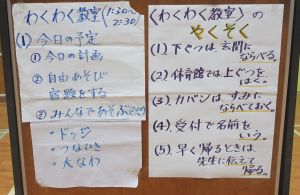 わくわく教室(1:30～2:30)
① 今日の予定
① 今日の計画
② 自由あそび
宿題をする
③ みんなであそぶ
・ドッジ
・つなひき
・大なわ
〈わくわく教室〉の
やくそく
(1) 下ぐつは、玄関に
ならべる。
(2) 体育館では上ぐつを
はく。
(3) カバンは、すみに
ならべておく。
(4) 受付で名前を
いう。
(5) 早く帰るときは、
先生に伝えて
帰る。